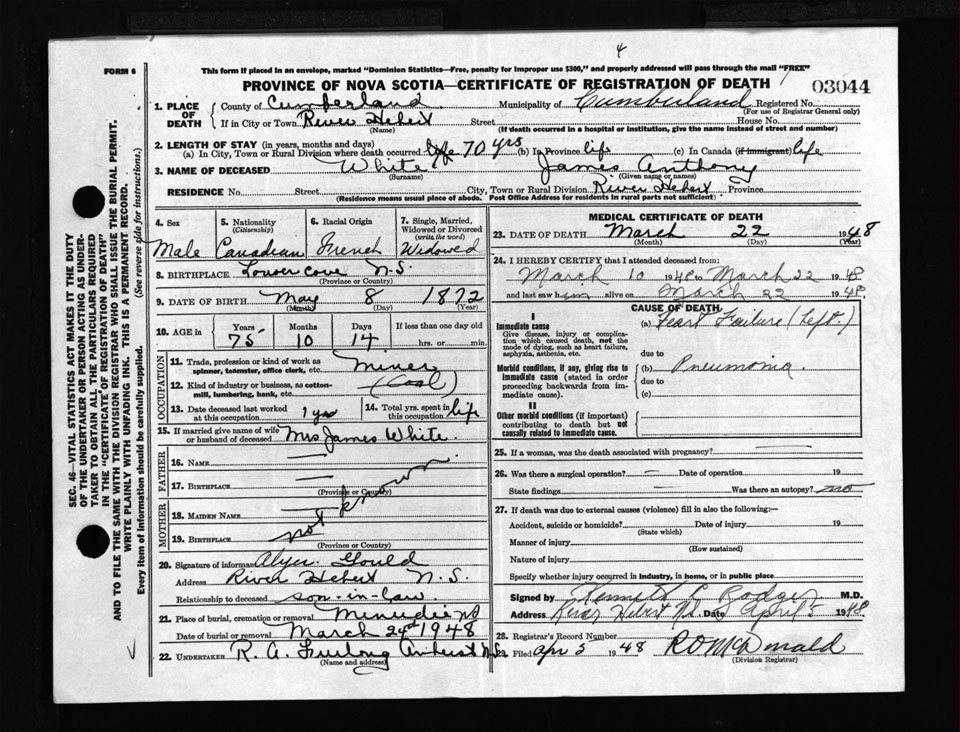 4
FORM 6
This form if placed in an envelope, marked "Dominion Statistics—Free, penalty for improper use $300," and properly addressed will pass through the mail "FREE"
PROVINCE OF NOVA SCOTIA—CERTIFICATE OF REGISTRATION OF DEATH
03044
1. PLACE OF DEATH
County of Cumberland Municipality of Cumberland Registered No.
(For use of Registrar General only)
If in City or Town River Hebert Street House No.
(Name) (If death occurred in a hospital or institution, give the name instead of street and number)
2. LENGTH OF STAY (in years, months and days)
(a) In City, Town or Rural Division where death occurred life 70 yrs (b) In Province life (c) In Canada (if immigrant) life
3. NAME OF DECEASED White James Anthony
(Surname) (Given name or names)
RESIDENCE No. Street City, Town or Rural Division River Hebert Province
(Residence means usual place of abode. Post Office Address for residents in rural parts not sufficient)
4. Sex 5. Nationality (Citizenship) 6. Racial Origin 7. Single, Married, Widowed or Divorced (write the word)
Male Canadian French Widowed
8. BIRTHPLACE Lower Cove N.S.
(Province or Country)
9. DATE OF BIRTH May 8 1872
(Month) (Day) (Year)
10. AGE in Years Months Days If less than one day old
75 10 14 hrs. or min.
OCCUPATION
11. Trade, profession or kind of work as spinner, teamster, office clerk, etc. Miner
12. Kind of industry or business, as cotton-mill, lumbering, bank, etc. (Coal)
13. Date deceased last worked at this occupation 1 yr 14. Total yrs. spent in this occupation life
15. If married give name of wife or husband of deceased Mrs James White.
FATHER
16. NAME —
17. BIRTHPLACE —
(Province or Country)
MOTHER
18. MAIDEN NAME
19. BIRTHPLACE not know
(Province or Country)
20. Signature of informant Gould
Address River Hebert N.S.
Relationship to deceased son-in-law.
21. Place of burial, cremation or removal Minudie NS
Date of burial or removal March 24th 1948
22. UNDERTAKER R. A. Furlong Amherst N.S.
(Name and address)
MEDICAL CERTIFICATE OF DEATH
23. DATE OF DEATH March 22 1948
(Month) (Day) (Year)
24. I HEREBY CERTIFY that I attended deceased from:
March 10 1948 to March 22 1948
and last saw him alive on March 22 1948.
CAUSE OF DEATH
I
Immediate cause
Give disease, injury or complication which caused death, not the mode of dying, such as heart failure, asphyxia, asthenia, etc.
(a) Heart Failure (Left.)
due to
Morbid conditions, if any, giving rise to immediate cause (stated in order proceeding backwards from immediate cause).
(b) Pneumonia.
due to
(c)
II
Other morbid conditions (if important) contributing to death but not causally related to immediate cause.
25. If a woman, was the death associated with pregnancy?
26. Was there a surgical operation? — Date of operation 19
State findings — Was there an autopsy? no
27. If death was due to external causes (violence) fill in also the following:—
Accident, suicide or homicide? Date of injury 19
(State which)
Manner of injury
(How sustained)
Nature of injury
Specify whether injury occurred in industry, in home, or in public place
Signed by Kenneth L Rodger M.D.
Address River Hebert N.S. Date April 5 1948
28. Registrar's Record Number
Filed Apr 5 1948 R O McDonald
(Division Registrar)
SEC. 46—VITAL STATISTICS ACT MAKES IT THE DUTY
OF THE UNDERTAKER OR PERSON ACTING AS UNDER-
TAKER TO OBTAIN ALL THE PARTICULARS REQUIRED
IN THE "CERTIFICATE OF REGISTRATION OF DEATH"
AND TO FILE THE SAME WITH THE DIVISION REGISTRAR WHO SHALL ISSUE THE BURIAL PERMIT.
WRITE PLAINLY WITH UNFADING INK. THIS IS A PERMANENT RECORD.
Every item of Information should be carefully supplied. (See reverse side for instructions.)